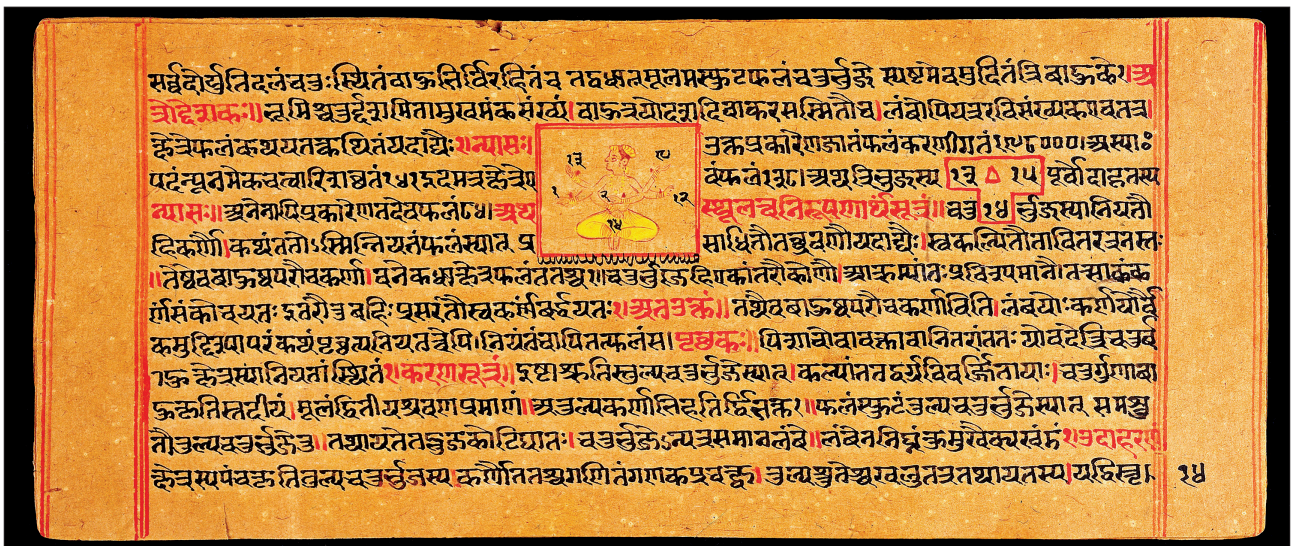 सर्व्वदोर्युतिदलं चतुःस्थितं बाहुभिर्विरहितं च तद्वधात् मूलमस्फुटफलं चतुर्भुजे स्पष्टमेवमुदितं त्रिबाहुके। अ
त्रोद्देशकः॥ भूमिश्चतुर्द्दशमितामुखमंकसंख्यं। बाहूत्रयोदशदिवाकरसम्मितौ च। लंबोपि यत्र रविसंख्यक एव तत्र।
क्षेत्रे फलं कथय तत्कथितं यदाद्यैः। न्यासः। उक्तप्रकारेण जातं फलं करणीगतं १९८०००० अस्याः
१३ १५
पदं न्यूनमेकचत्वारिंशच्छतं १४१ इदमत्र क्षेत्रे ए वं फलं १३८। अथ त्रिभुजस्य १३ १५ पूर्वोदाहृतस्य
१ २ १२
१४
न्यासः॥ अनेनापि प्रकारेण तदेव फलं ८४। अथ स्थूलत्वनिरूपणार्थं सूत्रं॥ चतु १४ र्भुजस्यानियतौ
हि कर्णौ। कथं ततोऽस्मिन्नियतं फलं स्यात् प्र साधितौ तच्छ्रवणौ यदाद्यैः। स्वकल्पितौ तावितरत्र न स्तः
॥तेष्वेव बाहुष्वपरौ च कर्णौ। अनेकधा क्षेत्रफलं ततश्च॥ चतुर्भुजे हि एकांतरौ कोणौ। आक्रम्यांतः प्रवेश्यमानौ। तत्साकं क
र्णं संकोचयतः इतरौ तु बहिः प्रसरंतौ स्वकर्णं वर्द्धयतः। अत उक्तं॥ तथैव बाहुष्वपरौ च कर्णाविति। लंबयोः कर्णयोर्वै
कमुद्दिश्यापरं कथं पृच्छत्यनियतत्वेपि। नियतं चापि तत्फलं स। पृच्छकः। पिशाचो वा वक्ता वा नितरां ततः यो न वेत्ति चतुर्ब
ाहुक्षेत्रस्यानियतां स्थितिं। करणसूत्रं॥ इष्टाश्रुतिस्तुल्यचतुर्भुजे स्यात्। कल्प्याथ तद्वर्गविवर्ज्जितायाः। चतुर्गुणा बा
हुकृतिस्तदीयं। मूलं द्वितीयश्रवणप्रमाणं॥ अतुल्यकर्णाभिहतिर्द्विभक्ता। फलं स्फुटं तुल्यचतुर्भुजे स्यात् समश्रु
तौ तुल्यचतुर्भुजे तु॥ तथायते तद्भुजकोटिघातः। चतुर्भुजेऽन्यत्र समानलंबे। लंबेन निघ्नं कुमुखैक्यखंडं। उदाहरण
क्षेत्रस्य पंचकृतितुल्यचतुर्भुजस्य। कर्णौ ततश्च गणितं गणक प्रचक्ष्व। तुल्यश्रुतेश्च खलु तत्र तथायतस्य। यद्विस्तृ। १४